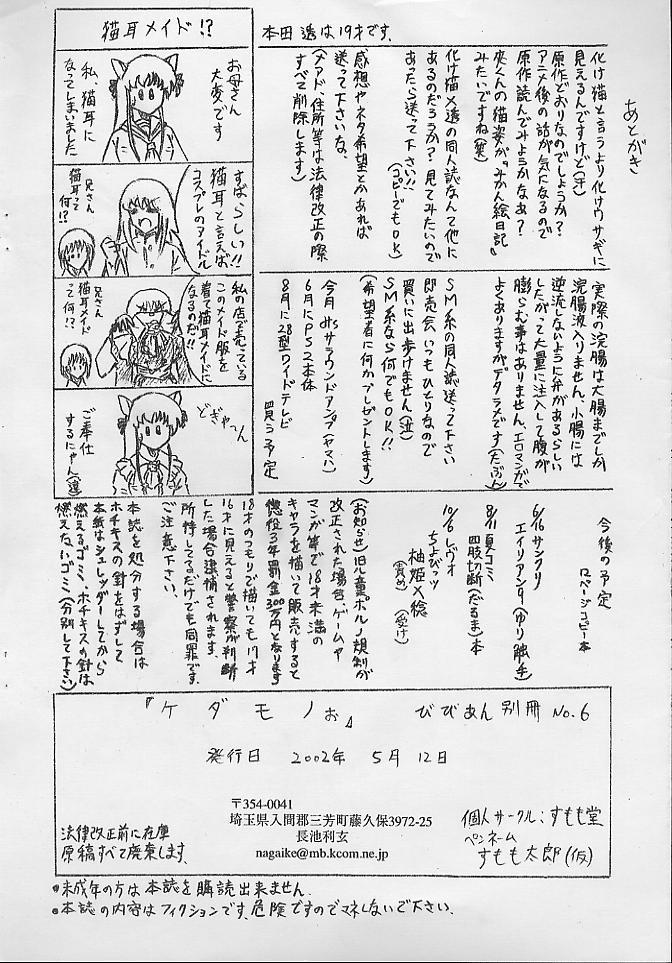 あとがき
化け猫と言うより化けウサギに
見えるんですけど(汗)
原作どおりなのでしょうか?
アニメ後の話が気になるので
原作読んでみようかなぁ?
夾くんの猫姿が『みかん絵日記』
みたいですね(笑)
化け猫×透の同人誌なんて他に
あるのだろうか?見てみたいので
あったら送って下さい!!
(コピーでもOK)
感想やネタ希望とかあれば
送って下さいな、
(メアド、住所等は法律改正の際
すべて削除します)
本田透は19才です。
猫耳メイド!?
お母さん
大変です
私、猫耳に
なってしまいました
すばらしい!!
猫耳と言えば
コスプレのアイドル
兄さん
猫耳って
何!?
私の店で売っている
このメイド服を
着て猫耳メイドに
なるのだ!!
兄さん
猫耳メイド
って何!?
どぎゃーん
ご奉仕
するにゃん(違)
実際の浣腸は大腸までしか
浣腸液入りません、小腸には
逆流しないように弁があるらしい
したがって大量に注入して腹が
膨らむ事はありません、エロマンガで
よくありますがデタラメです(たぶん)
SM系の同人誌送って下さい
即売会いつもひとりなので
買いに出歩けません(泣)
SM系なら何でもOK!!
(希望者に何かプレゼントします)
今月 5.1chサラウンドアンプ(ヤマハ)
6月にPS2本体
8月に28型ワイドテレビ
買う予定
今後の予定
ロページコピー本
6/16サンクリ
エイリアン9(ゆり触手)
8/11夏コミ
四肢切断(だるま)本
10/6レヴォ
ちょびッツ
柚姫×稔
(責め)(受け)
(お知らせ)児童ポルノ規制が
改正された場合、ゲームや
マンガ等で18才未満の
キャラを描いて販売すると
懲役3年罰金300万円となります
18才のつもりで描いても17才
16才に見えると警察が判断
した場合逮捕されます、
所持してるだけでも同罪です、
ご注意下さい、
本誌を処分する場合は
ホチキスの針をはずして
本紙はシュレッダーしてから
燃えるゴミ、ホチキスの針は
燃えないゴミ(分別して下さい)
『ケダモノぉ』 びびあん別冊 No.6
発行日 2002年 5月12日
〒354-0041
埼玉県入間郡三芳町藤久保3972-25
長池利玄
nagaike@mb.kcom.ne.jp
個人サークル:すもも堂
ペンネーム
すもも太郎(仮)
法律改正前に在庫
原稿すべて廃棄します、
●未成年の方は本誌を購読出来ません、
●本誌の内容はフィクションです、危険ですのでマネしないで下さい、